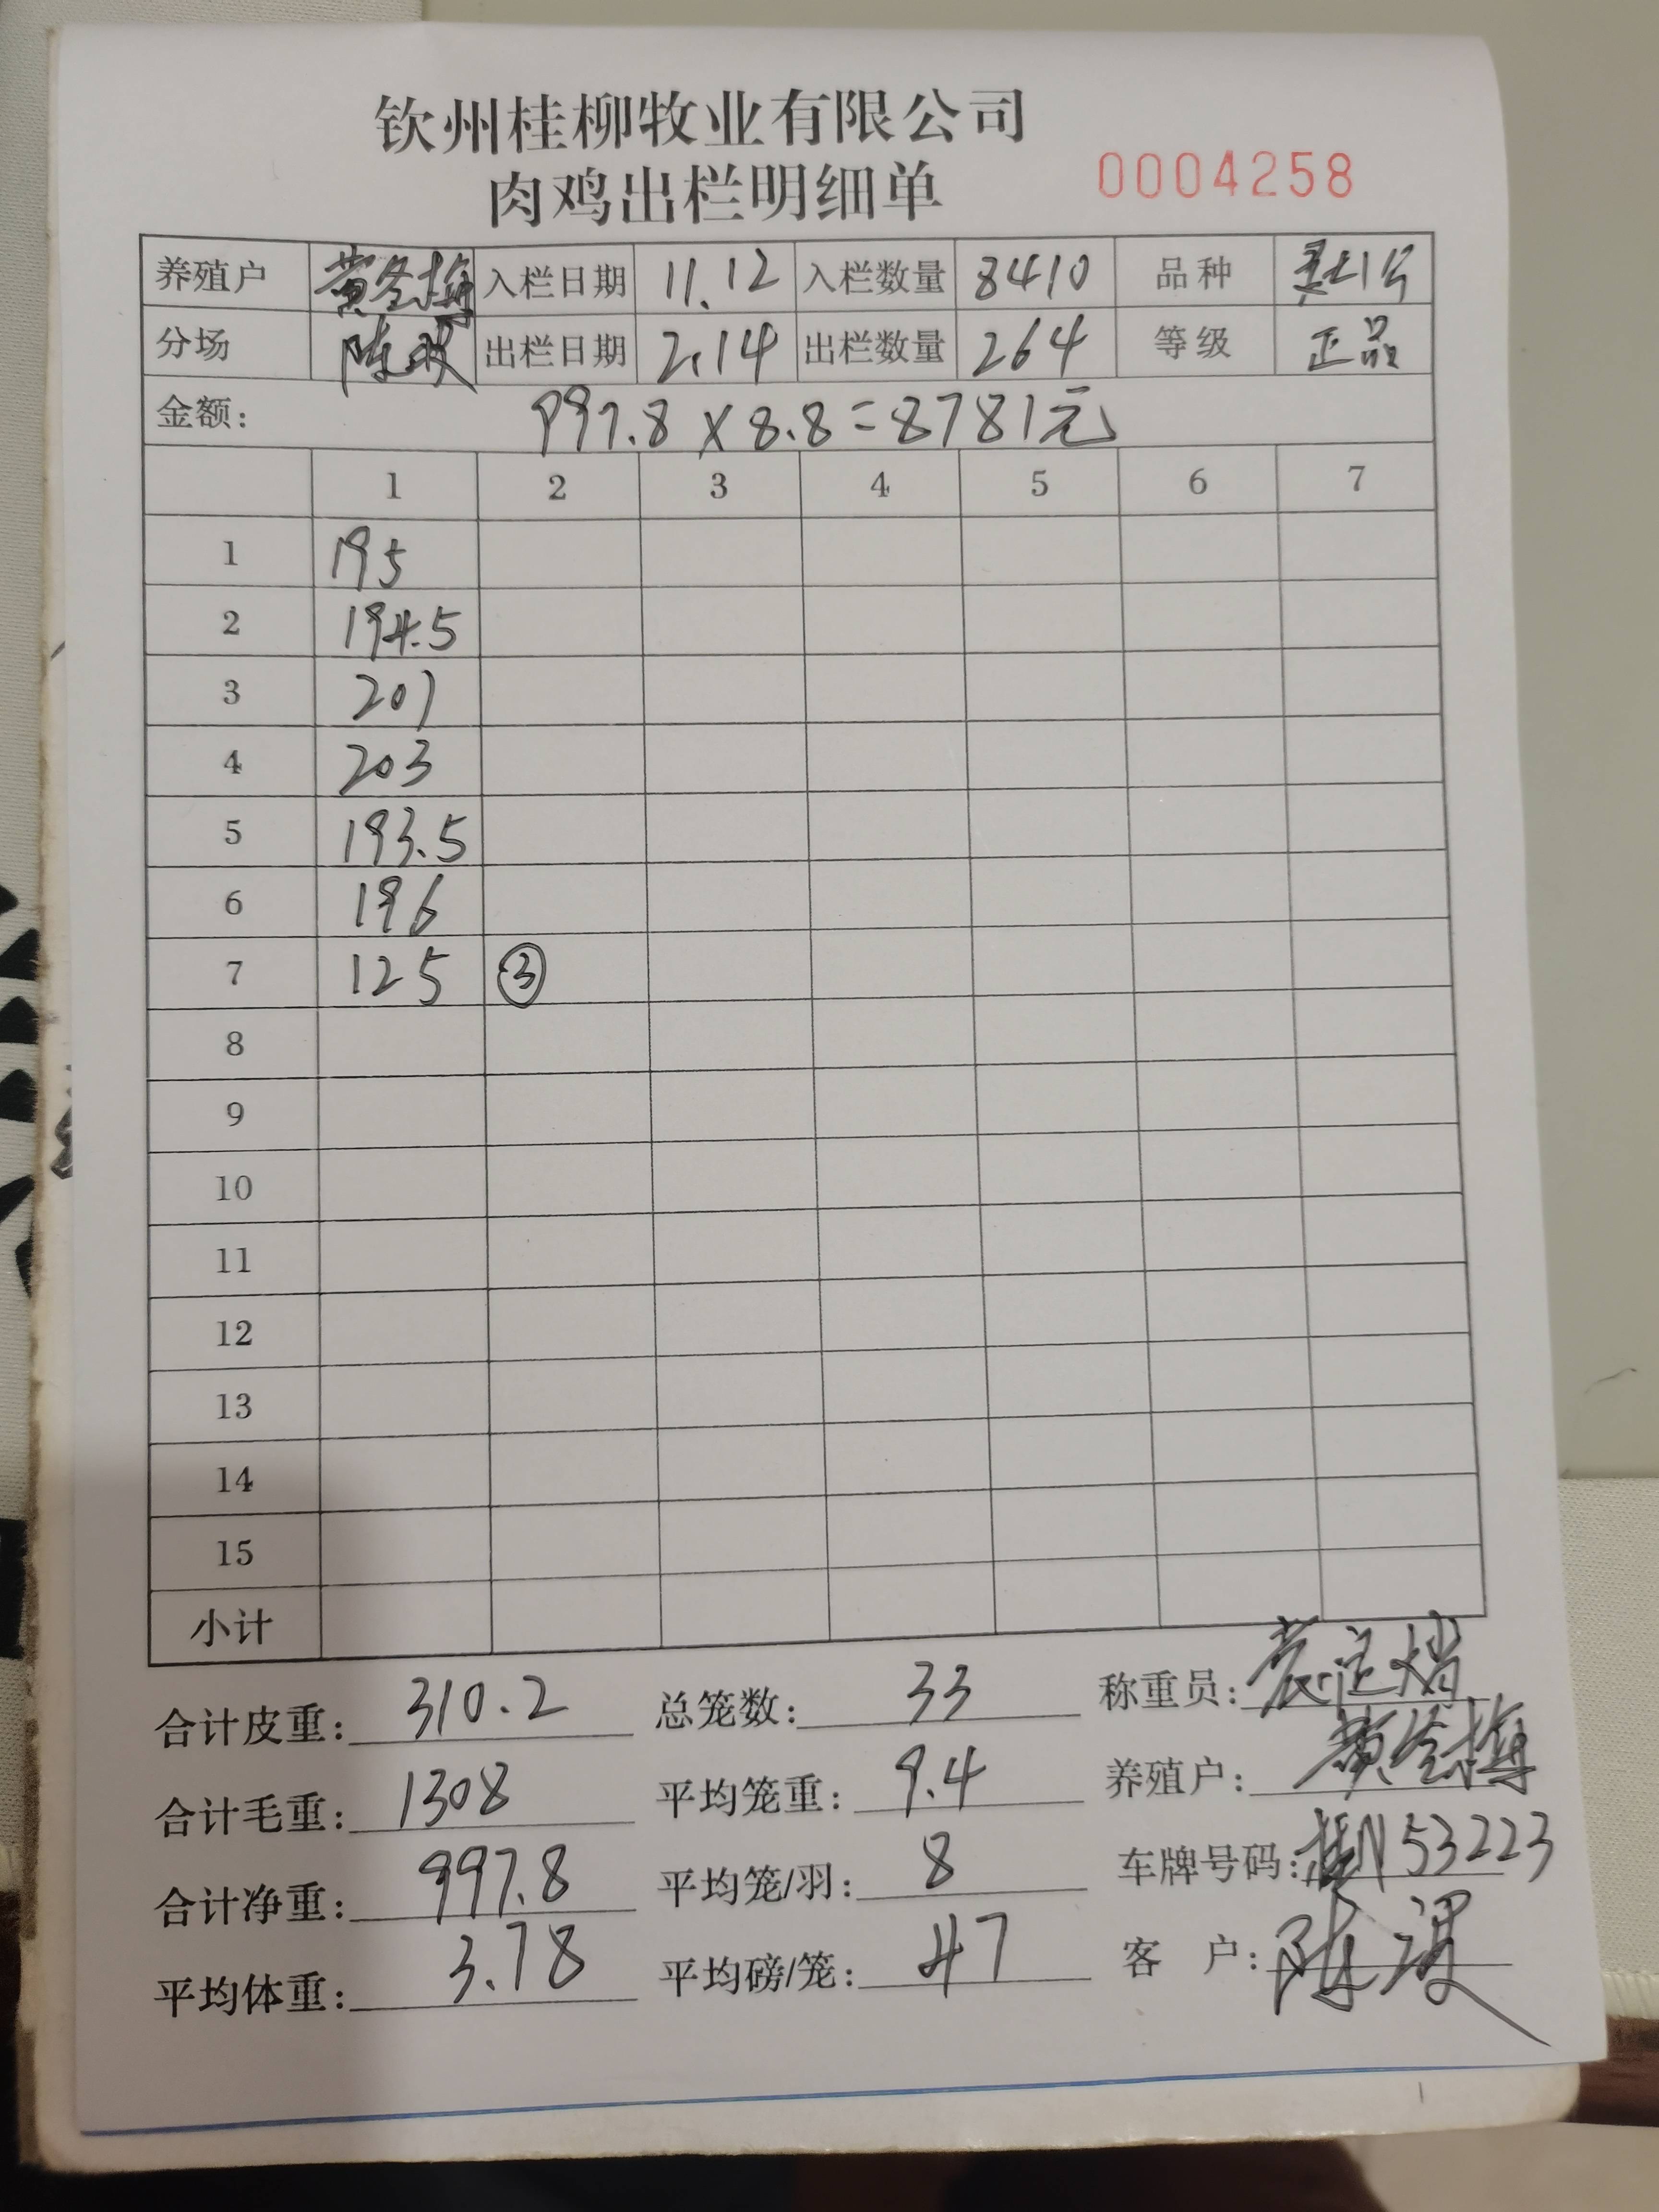 钦州桂柳牧业有限公司
肉鸡出栏明细单 0004258
养殖户 黄冬梅 入栏日期 11.12 入栏数量 8410 品种
分场 陈 出栏日期 2.14 出栏数量 264 等级 正品
金额: 997.8 × 8.8 = 8781元
1 2 3 4 5 6 7
1 195
2 194.5
3 201
4 203
5 193.5
6 196
7 125 ③
8
9
10
11
12
13
14
15
小计
合计皮重: 310.2 总笼数: 33 称重员:
合计毛重: 1308 平均笼重: 9.4 养殖户: 黄冬梅
合计净重: 997.8 平均笼/羽: 8 车牌号码: 桂N53223
平均体重: 3.78 平均磅/笼: 47 客户: 陈